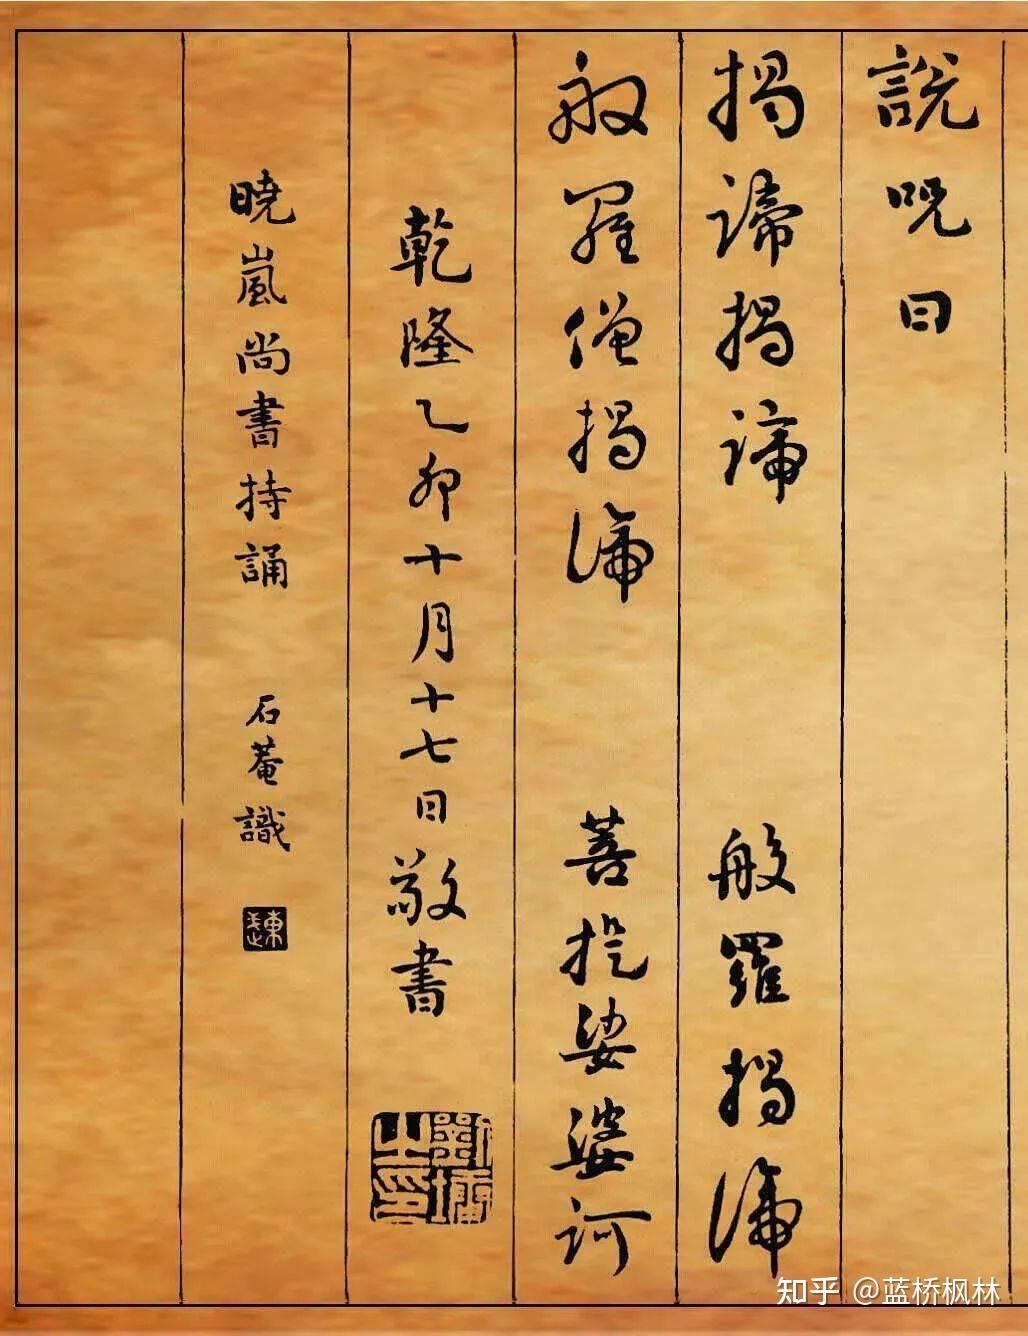 說呪曰
揭諦揭諦 般羅揭諦
般羅僧揭諦 菩提娑婆訶
乾隆乙卯十月十七日敬書
劉墉之印
曉嵐尚書持誦 石菴識
知乎 @蓝桥枫林